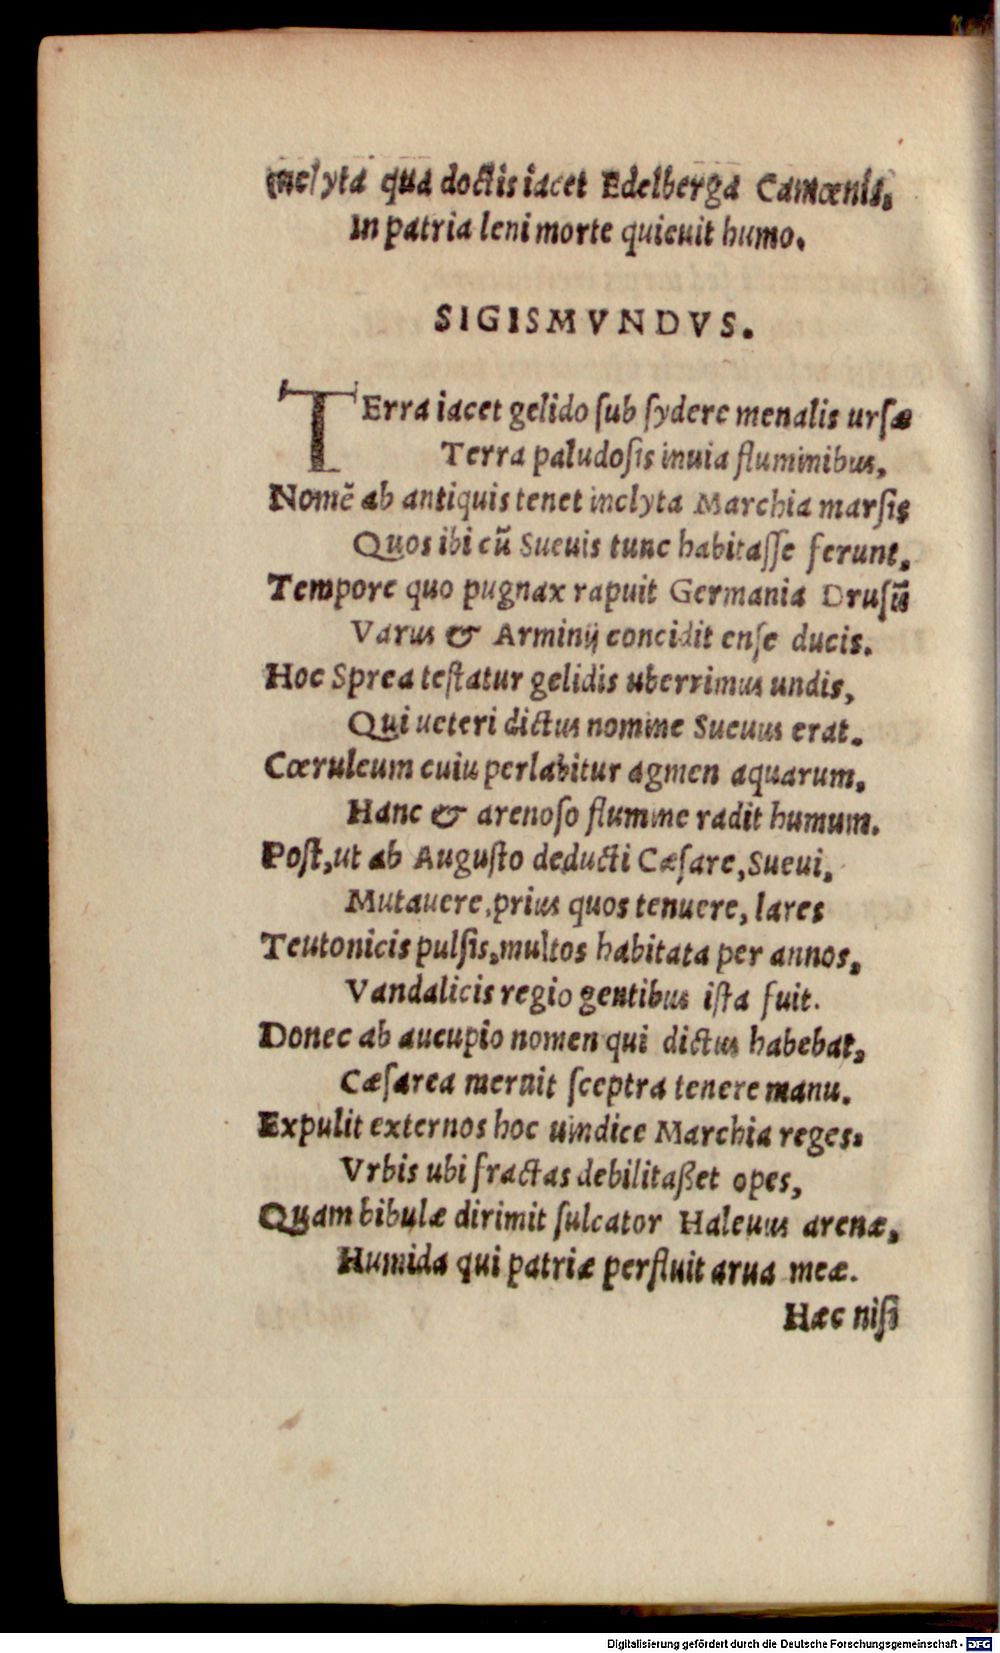 Inclyta qua doctis iacet Edelberga Camœnis,
In patria leni morte quieuit humo.
SIGISMVNDVS.
TErra iacet gelido ſub ſydere menalis urſæ
Terra paludoſis inuia fluminibus,
Nomē ab antiquis tenet inclyta Marchia marſis
Quos ibi cū Sueuis tunc habitaſſe ferunt,
Tempore quo pugnax rapuit Germania Druſū
Varus & Arminij concidit enſe ducis.
Hoc Sprea teſtatur gelidis uberrimus undis,
Qui ueteri dictus nomine Sueuus erat.
Cœruleum cuiu perlabitur agmen aquarum,
Hanc & arenoſo flumine radit humum.
Poſt, ut ab Auguſto deducti Cæſare, Sueui,
Mutauere, prius quos tenuere, lares
Teutonicis pulſis, multos habitata per annos,
Vandalicis regio gentibus iſta fuit.
Donec ab aucupio nomen qui dictus habebat,
Cæſarea meruit ſceptra tenere manu.
Expulit externos hoc uindice Marchia reges.
Vrbis ubi fractas debilitaßet opes,
Quam bibulæ dirimit ſulcator Haleuus arenæ,
Humida qui patriæ perfluit arua meæ.
Hæc niſi
Digitalisierung gefördert durch die Deutsche Forschungsgemeinschaft - DFG